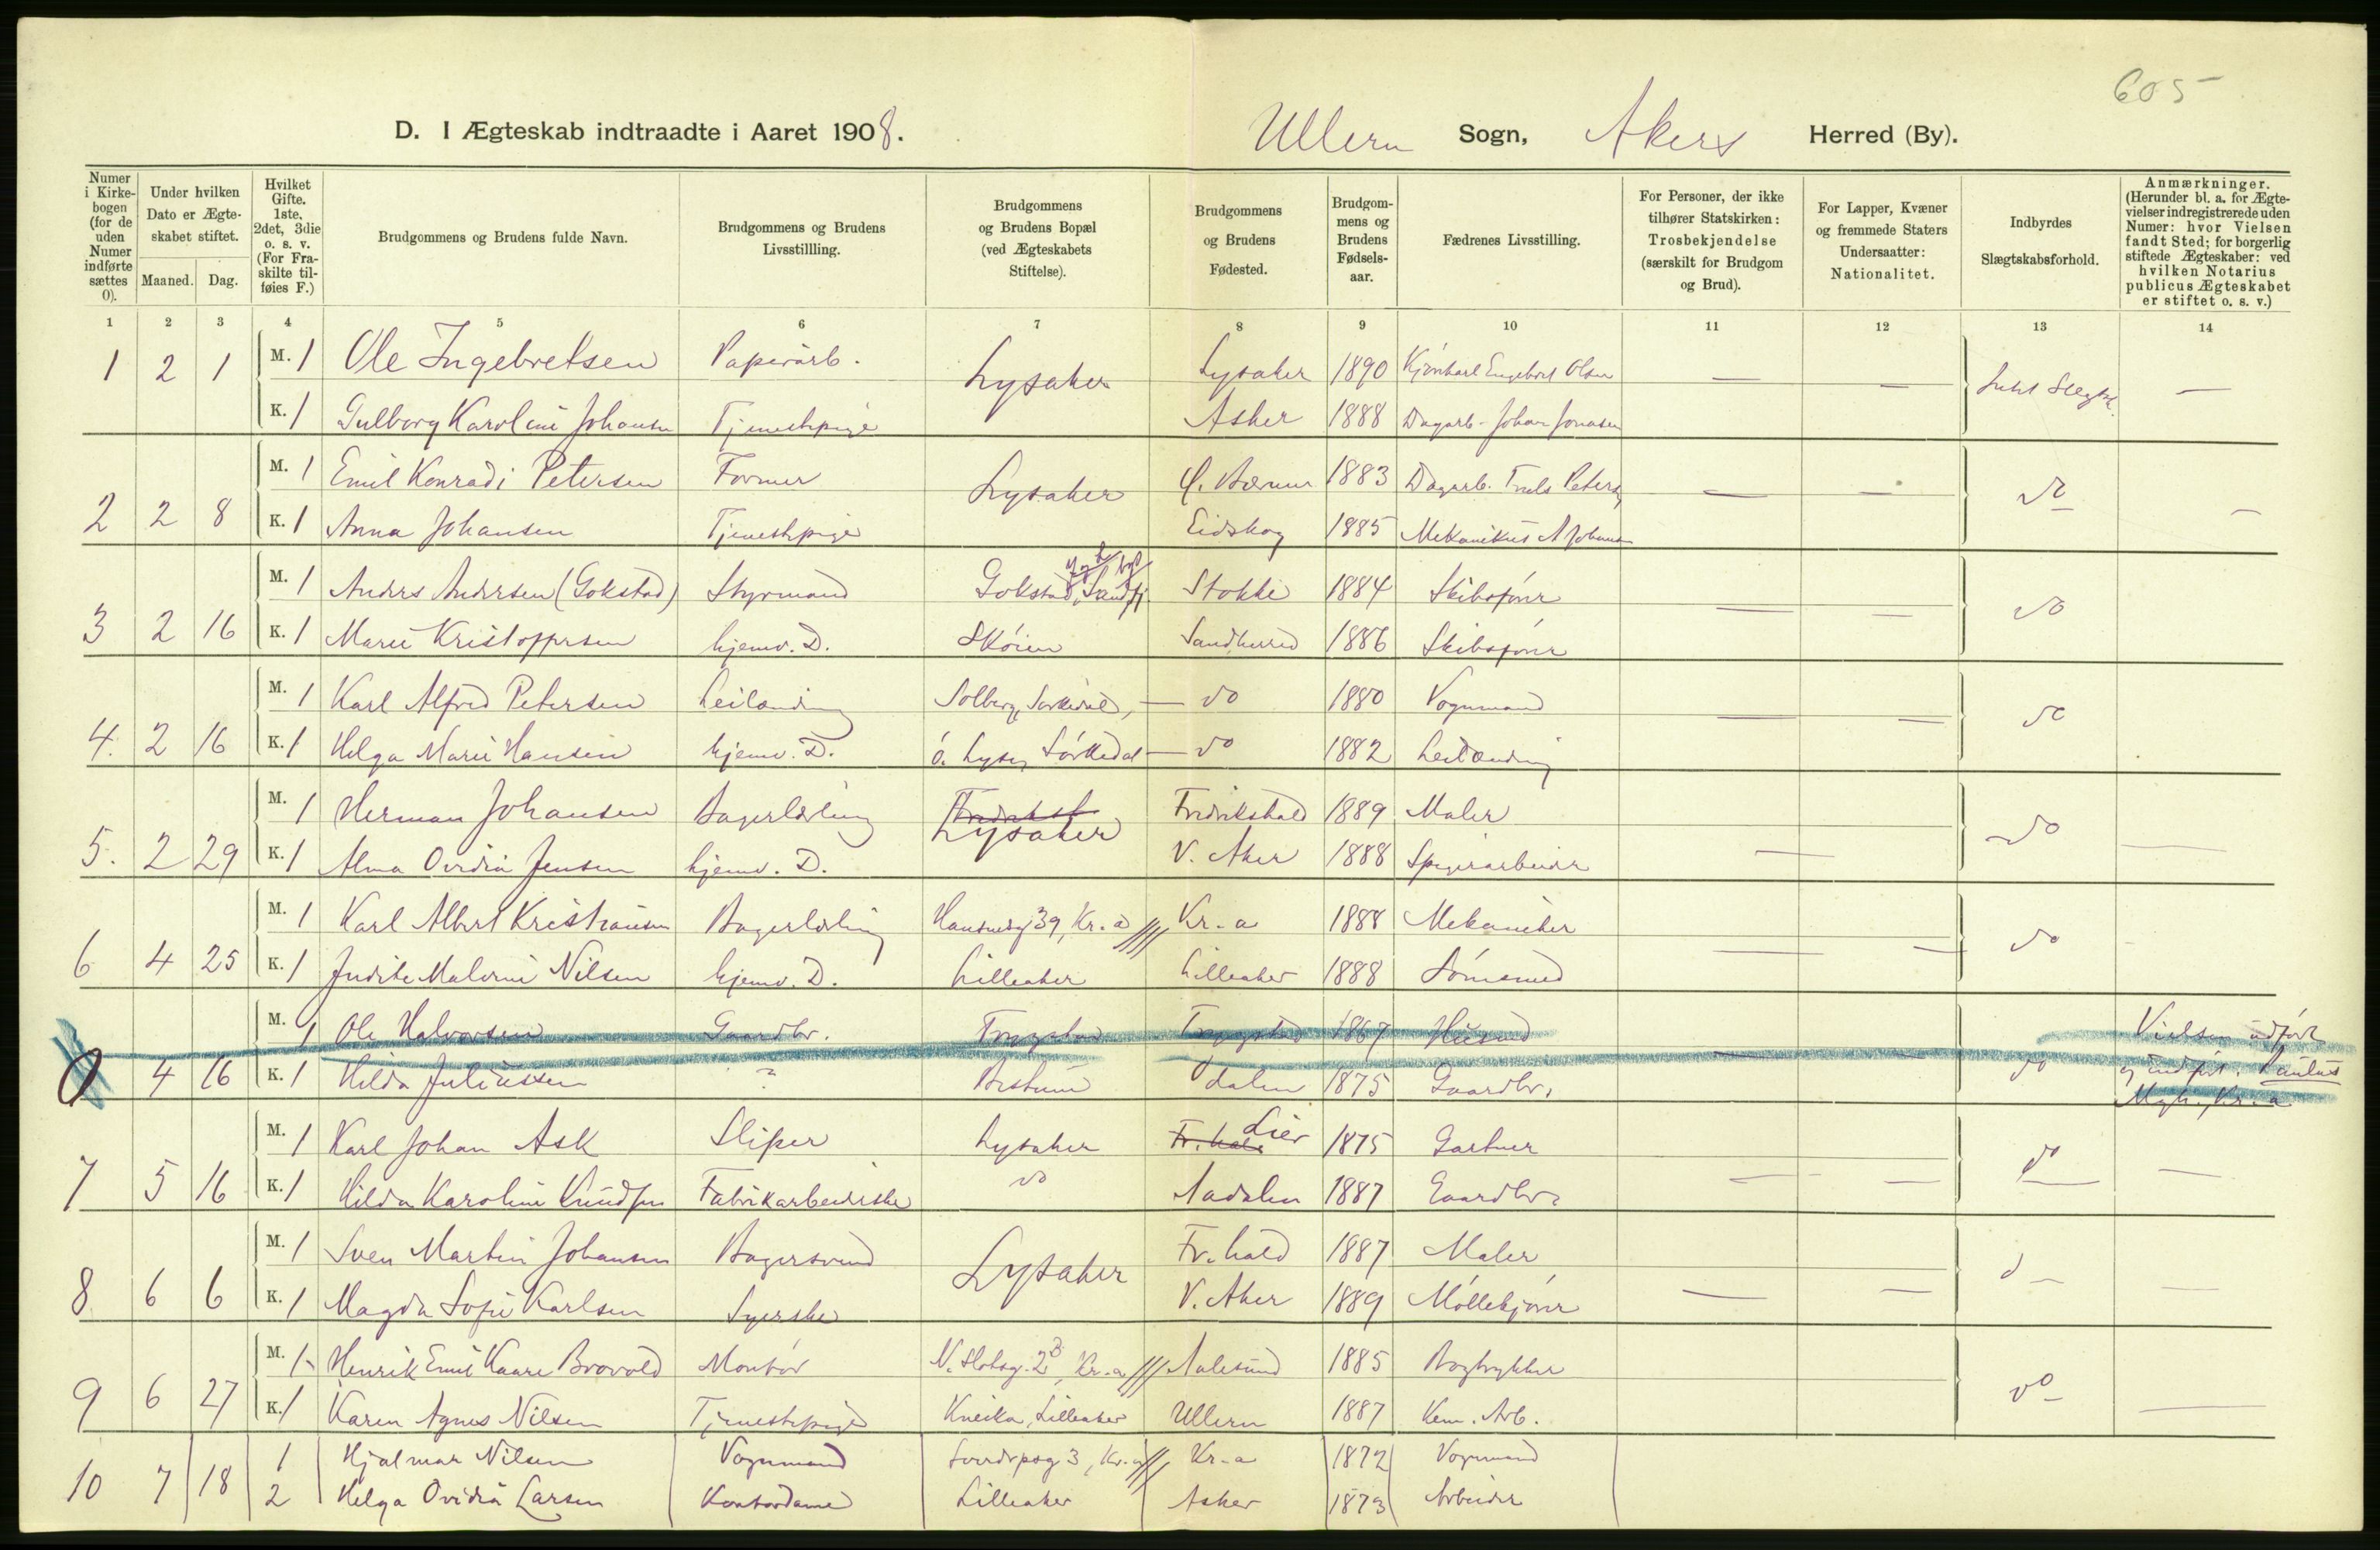 605
D. I Ægteskab indtraadte i Aaret 1908. Ullern Sogn, Akers Herred (By).
Numer i Kirkebogen (for de uden Numer indførte sættes 0).
Under hvilken Dato er Ægteskabet stiftet.
Maaned. Dag.
Hvilket Gifte. 1ste, 2det, 3die o. s. v. (For Fraskilte tilføies F.)
Brudgommens og Brudens fulde Navn.
Brudgommens og Brudens Livsstillling.
Brudgommens og Brudens Bopæl (ved Ægteskabets Stiftelse).
Brudgommens og Brudens Fødested.
Brudgommens og Brudens Fødselsaar.
Fædrenes Livsstilling.
For Personer, der ikke tilhører Statskirken: Trosbekjendelse (særskilt for Brudgom og Brud).
For Lapper, Kvæner og fremmede Staters Undersaatter: Nationalitet.
Indbyrdes Slægtskabsforhold.
Anmærkninger. (Herunder bl. a. for Ægtevielser indregistrerede uden Numer: hvor Vielsen fandt Sted; for borgerlig stiftede Ægteskaber: ved hvilken Notarius publicus Ægteskabet er stiftet o. s. v.)
1 2 3 4 5 6 7 8 9 10 11 12 13 14
1 2 1 M. 1 Ole Ingebretsen Papirarb. Lysaker Lysaker 1890 Olsen — — —
K. 1 Gulborg Karoline Johansen Tjenestepige Asker 1888 Dagarb. Johan Jonasen
2 2 8 M. 1 Emil Konradi Petersen Former Lysaker Ø. Bærum 1883 Dagarb. Truls Peters — — do —
K. 1 Anna Johansen Tjenestepige Eidskog 1885 Mekanikus A Johansen
3 2 16 M. 1 Anders Andersen (Gokstad) Styrmand Gokstad, Sandfj. Stokke 1884 Skibsfører — — do
K. 1 Marie Kristoffersen hjemv. D. Skøien Sandherred 1886 Skibsfører
4. 2 16 M. 1 Karl Alfred Petersen Leilænding Solberg, Sørkedal, — do 1880 Vognmand — — do
K. 1 Helga Marie Hansen hjemv. D. Ø. Lyse, Sørkedal — do 1882 Leilænding
5. 2 29 M. 1 Herman Johansen Bagerlærling Fredrikst Lysaker Fredrikshald 1889 Maler — do —
K. 1 Alma Ovidia Jensen hjemv. D. V. Aker 1888 Spigerarbeider
6 4 25 M. 1 Karl Albert Kristiansen Bagerlærling 39, Kr.a Kr.a 1888 Mekaniker — — do
K. 1 Judite Malvine Nilsen hjemv. D. Lilleaker Lilleaker 1888 Sømsmed
0 4 16 M. 1 Ole Halvorsen Gaardbr. Trøgstad Trøgstad 1867 Husmd — — do Vielsen udført
K. 1 Hilda Juliussen ? Bestum Dalen 1875 Gaardbr. og indført i Paulus
Mgh., Kr.a
7 5 16 M. 1 Karl Johan Ask Sliper Lysaker Fr.hald Lier 1875 Gartner — — do —
K. 1 Hilda Karoline Knudsen Fabrikarbeiderske do Aadalen 1887 Gaardbr.
8 6 6 M. 1 Sven Martin Johansen Bagersvend Lysaker Fr.hald 1887 Maler — — do —
K. 1 Magda Sofie Karlsen Syerske V. Aker 1889 Møllekjører
9 6 27 M. 1 Henrik Emil Kaare Brovold Montør N. Slotsg. 2B, Kr.a Aalesund 1885 Bogtrykker do —
K. 1 Karen Agnes Nilsen Tjenestepige Kneika, Lilleaker Ullern 1887 Kem. Arb.
10 7 18 1 Hjalmar Nilsen Vognmand Sverdrpsg 3, Kr.a Kr.a 1872 Vognmand
2 Helga Ovidia Larsen Kontordame Lilleaker Asker 1873 Arbeider